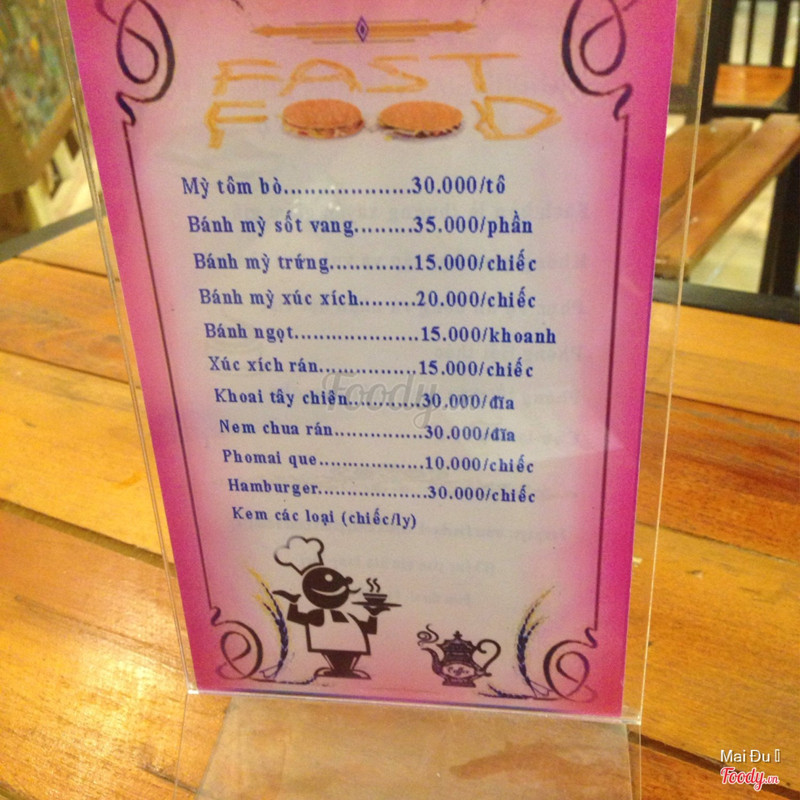 FAST
FOOD
Mỳ tôm bò...................30.000/tô
Bánh mỳ sốt vang.........35.000/phần
Bánh mỳ trứng.............15.000/chiếc
Bánh mỳ xúc xích........20.000/chiếc
Bánh ngọt...................15.000/khoanh
Xúc xích rán...............15.000/chiếc
Khoai tây chiên...........30.000/đĩa
Nem chua rán..............30.000/đĩa
Phomai que.................10.000/chiếc
Hamburger..................30.000/chiếc
Kem các loại (chiếc/ly)
Foody
Coffee
Mai Đu
Foody.vn